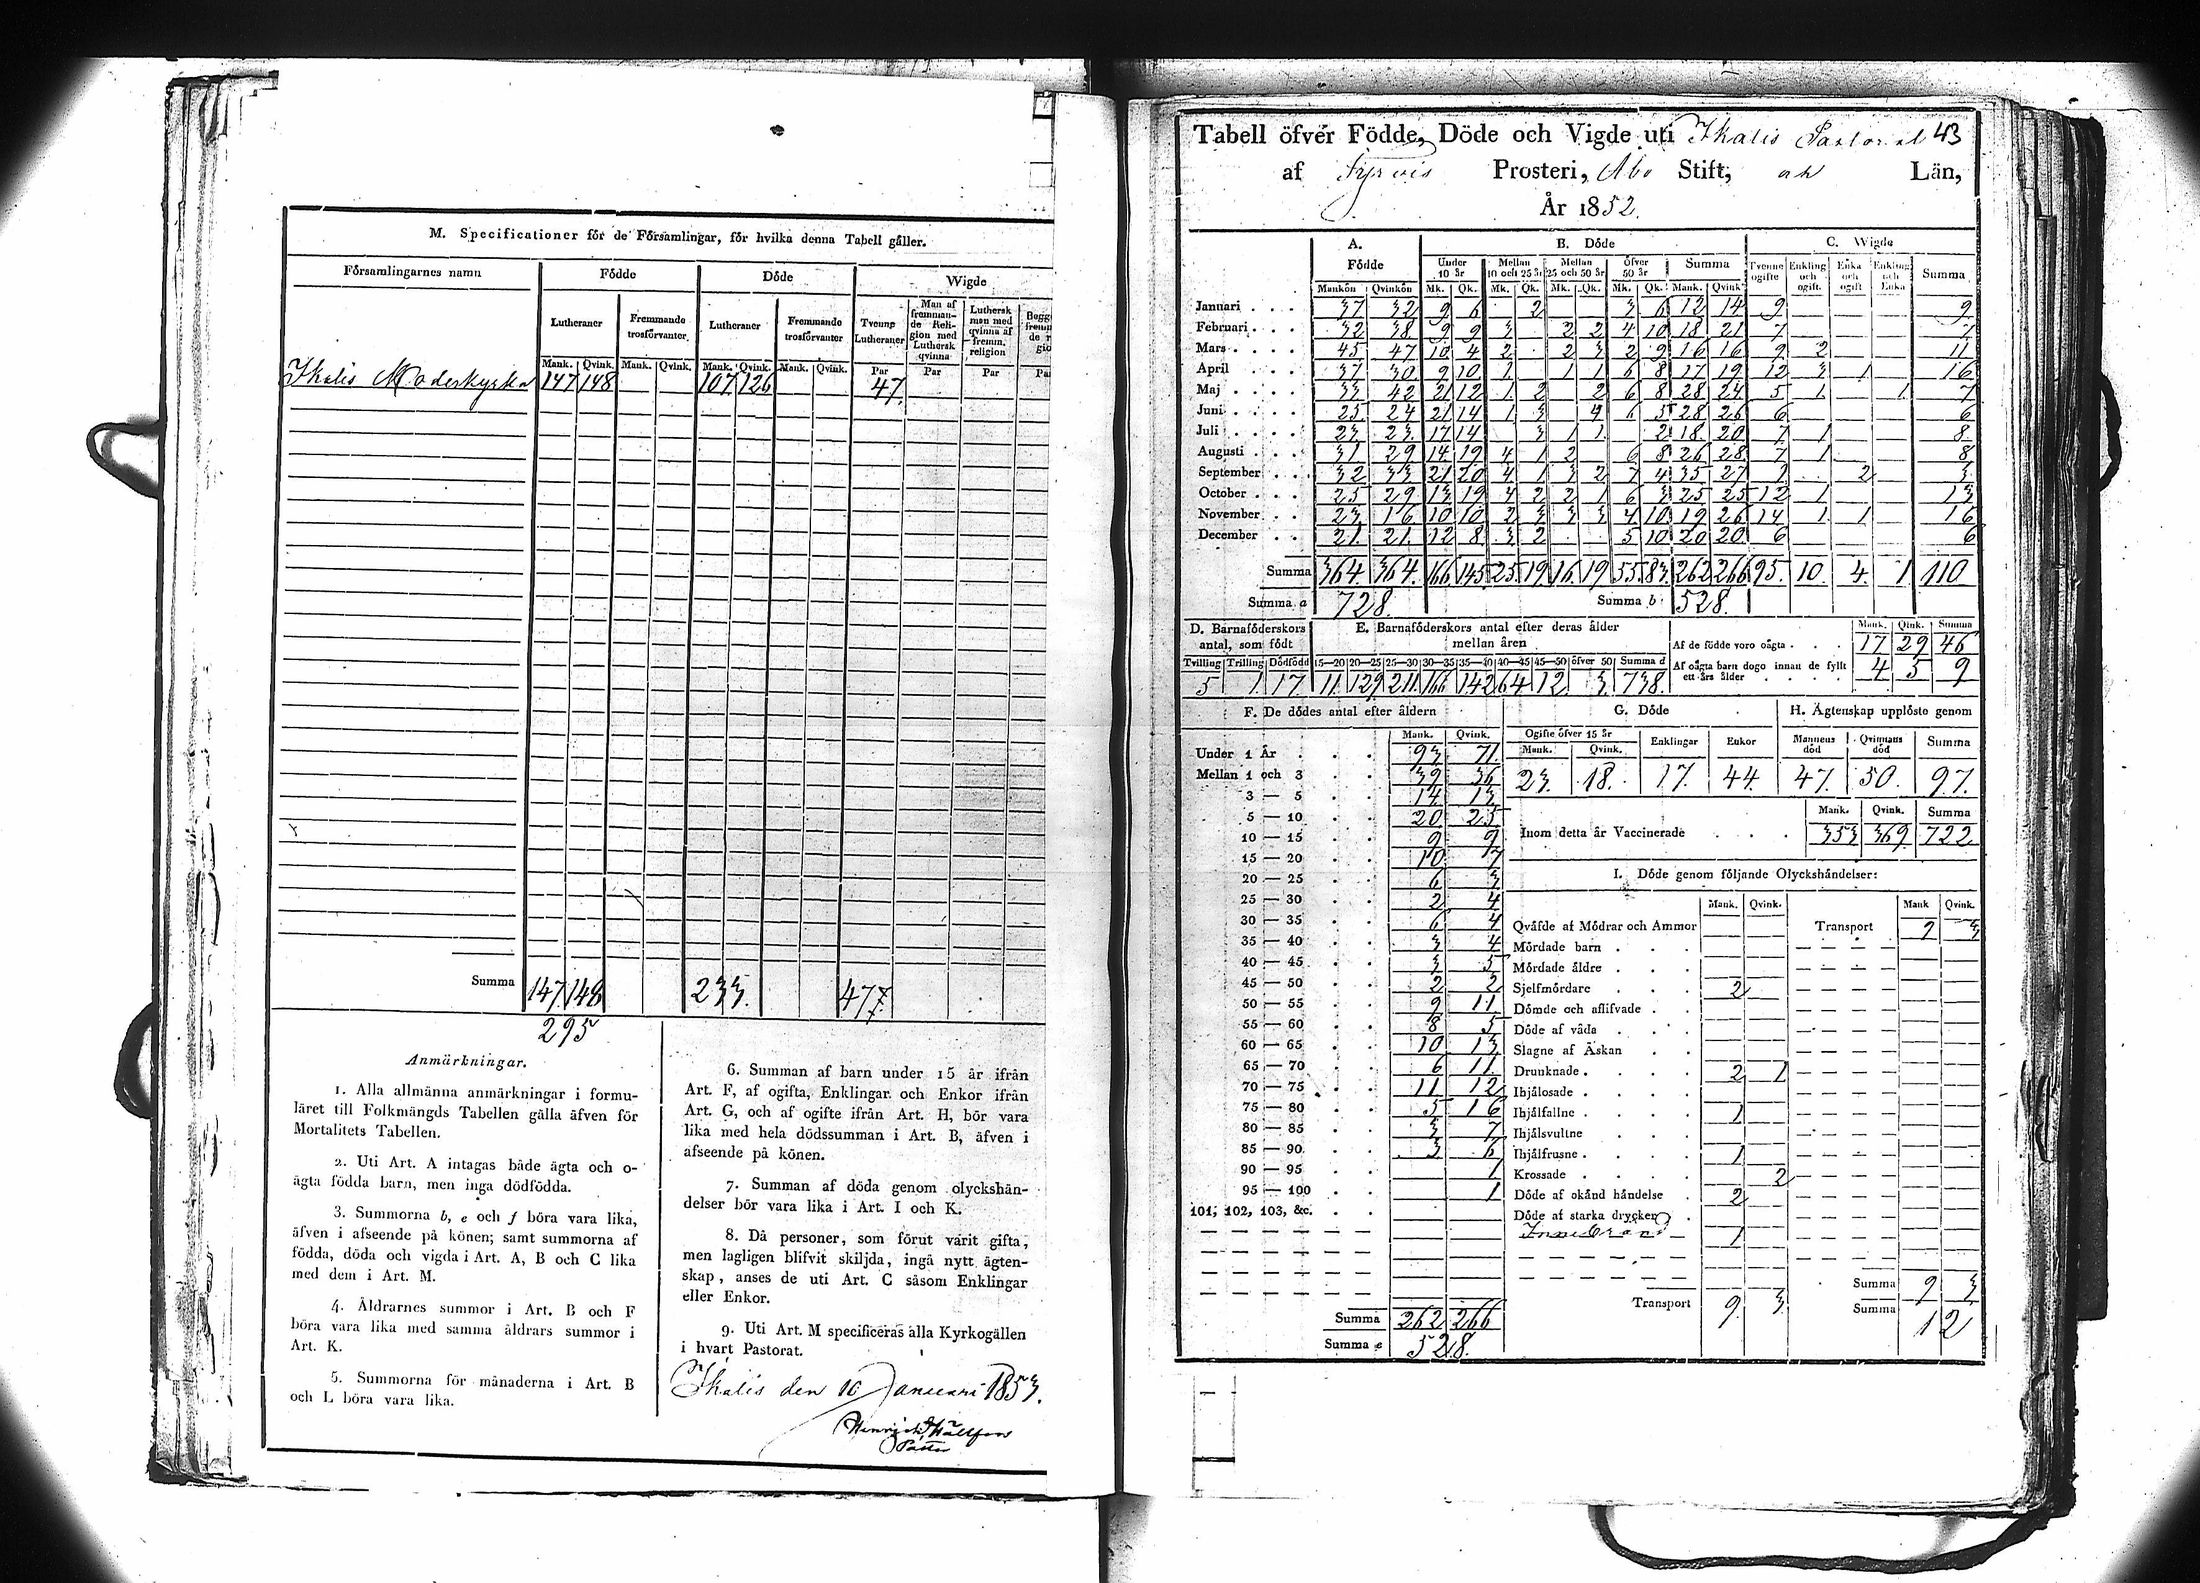 M. Specificationer för de Församlingar, för hvilka denna Tabell gäller.
Församlingarnes namn Födde Döde Wigde
Lutheraner Fremmande trosförvanter. Lutheraner Fremmande trosförvanter Tvenne Lutheraner Man af fremmande Religion med Luthersk qvinna Luthersk man med qvinna af fremm. religion
Mank. Qvink. Mank. Qvink. Mank. Qvink. Mank. Qvink. Par Par Par
Ikalis Moderkyrka 147 148 107 126 47.
Summa 147 148 233. 47
295
Anmärkningar.
1. Alla allmänna anmärkningar i formu-
läret till Folkmängds Tabellen gälla äfven för
Mortalitets Tabellen.
2. Uti Art. A intagas både ägta och o-
ägta födda barn, men inga dödfödda.
3. Summorna b, e och f böra vara lika,
äfven i afseende på könen; samt summorna af
födda, döda och vigda i Art. A, B och C lika
med dem i Art. M.
4. Åldrarnes summor i Art. B och F
böra vara lika med samma åldrars summor i
Art. K.
5. Summorna för månaderna i Art. B
och L böra vara lika.
6. Summan af barn under 15 år ifrån
Art. F, af ogifta, Enklingar och Enkor ifrån
Art. G, och af ogifte ifrån Art. H, bör vara
lika med hela dödssumman i Art. B, äfven i
afseende på könen.
7. Summan af döda genom olyckshän-
delser bör vara lika i Art. I och K.
8. Då personer, som förut varit gifta,
men lagligen blifvit skiljda, ingå nytt ägten-
skap, anses de uti Art. C såsom Enklingar
eller Enkor.
9. Uti Art. M specificeras alla Kyrkogällen
i hvart Pastorat.
Ikalis den 10 Januari 1853.
Pastor
Tabell öfver Födde, Döde och Vigde uti Ikalis Pastorat 43
af Tyrvis Prosteri, Åbo Stift, Län,
År 1852.
A. Födde B. Döde C. Wigde
Under 10 år Mellan 10 och 25 år Mellan 25 och 50 år Öfver 50 år Summa Tvenne ogifte Enkling och ogift. Enka och ogift Enkling och Enka Summa
Mankön Qvinkön Mk. Qk. Mk. Qk. Mk. Qk. Mk. Qk. Mank. Qvink.
Januari 37 32 9 6 2 3 6 12 14 9 9
Februari 32 38 9 9 3 2 2 4 10 18 21 7 7
Mars 45 47 10 4 2 2 3 2 9 16 16 9 2 11
April 37 30 9 10 1 1 1 6 8 17 19 12 3 1 16
Maj 33 42 21 12 1 2 2 6 8 28 24 5 1 1 7
Juni 25 24 21 14 1 3 4 6 5 28 26 6 6
Juli 23 23 17 14 3 1 1 2 18 20 7 1 8
Augusti 31 29 14 19 4 1 2 6 8 26 28 7 1 8
September 32 33 21 20 4 1 3 2 7 4 35 27 1 2 3
October 25 29 13 19 4 2 2 1 6 3 25 25 12 1 13
November 23 16 10 10 2 3 3 3 4 10 19 26 14 1 1 16
December 21 21 12 8 3 2 5 10 20 20 6 6
Summa 364 364 166 145 25 19 16 19 55 83 262 266 95 10 4 1 110
Summa a 728. Summa b 528.
D. Barnaföderskors antal, som födt
Tvilling Trilling Dödfödd
5 1 17
E. Barnaföderskors antal efter deras ålder mellan åren
15—20 20—25 25—30 30—35 35—40 40—45 45—50 öfver 50 Summa d
11 129 211 166 142 64 12 3 738.
Mank. Qink. Summa
Af de födde voro oägta 17 29 46
Af oägta barn dogo innan de fyllt ett års ålder 4 5 9
F. De dödes antal efter åldern
Mank. Qvink.
Under 1 År 93 71
Mellan 1 och 3 39 36
3 — 5 14 13
5 — 10 20 25
10 — 15 9 9
15 — 20 10 7
20 — 25 6 3
25 — 30 2 4
30 — 35 6 4
35 — 40 3 4
40 — 45 3 5
45 — 50 2 2
50 — 55 9 11
55 — 60 8 5
60 — 65 10 13
65 — 70 6 11
70 — 75 11 12
75 — 80 5 16
80 — 85 3 7
85 — 90 3 6
90 — 95 1
95 — 100 1
101, 102, 103, &c.
Summa 262 266
Summa e 528.
G. Döde
Ogifte öfver 15 år Enklingar Enkor
Mank. Qvink.
23. 18. 17. 44
H. Ägtenskap upplöste genom
Mannens död Qvinnans död Summa
47. 50. 97.
Mank. Qvink. Summa
Inom detta år Vaccinerade 353 369 722
I. Döde genom följande Olyckshändelser:
Mank. Qvink. Mank Qvink.
Qväfde af Mödrar och Ammor Transport 9 3
Mördade barn
Mördade äldre
Sjelfmördare 2
Dömde och aflifvade
Döde af våda
Slagne af Åskan
Drunknade 2 1
Ihjälosade
Ihjälfallne 1
Ihjälsvultne
Ihjälfrusne 1
Krossade 2
Döde af okänd händelse 2
Döde af starka drycker
Innebränd 1
Summa 9 3
Transport 9. 3 Summa 12